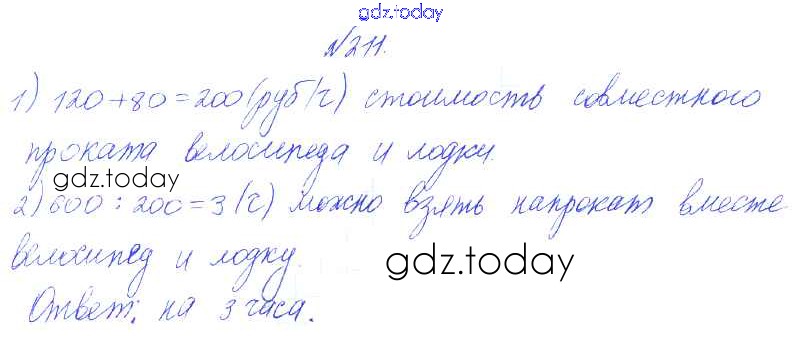 gdz.today
№211.
1) 120+80=200(руб/ч) стоимость совместного
проката велосипеда и лодки.
gdz.today
2) 600:200=3(ч) можно взять напрокат вместе
велосипед и лодку.
gdz.today
Ответ: на 3 часа.